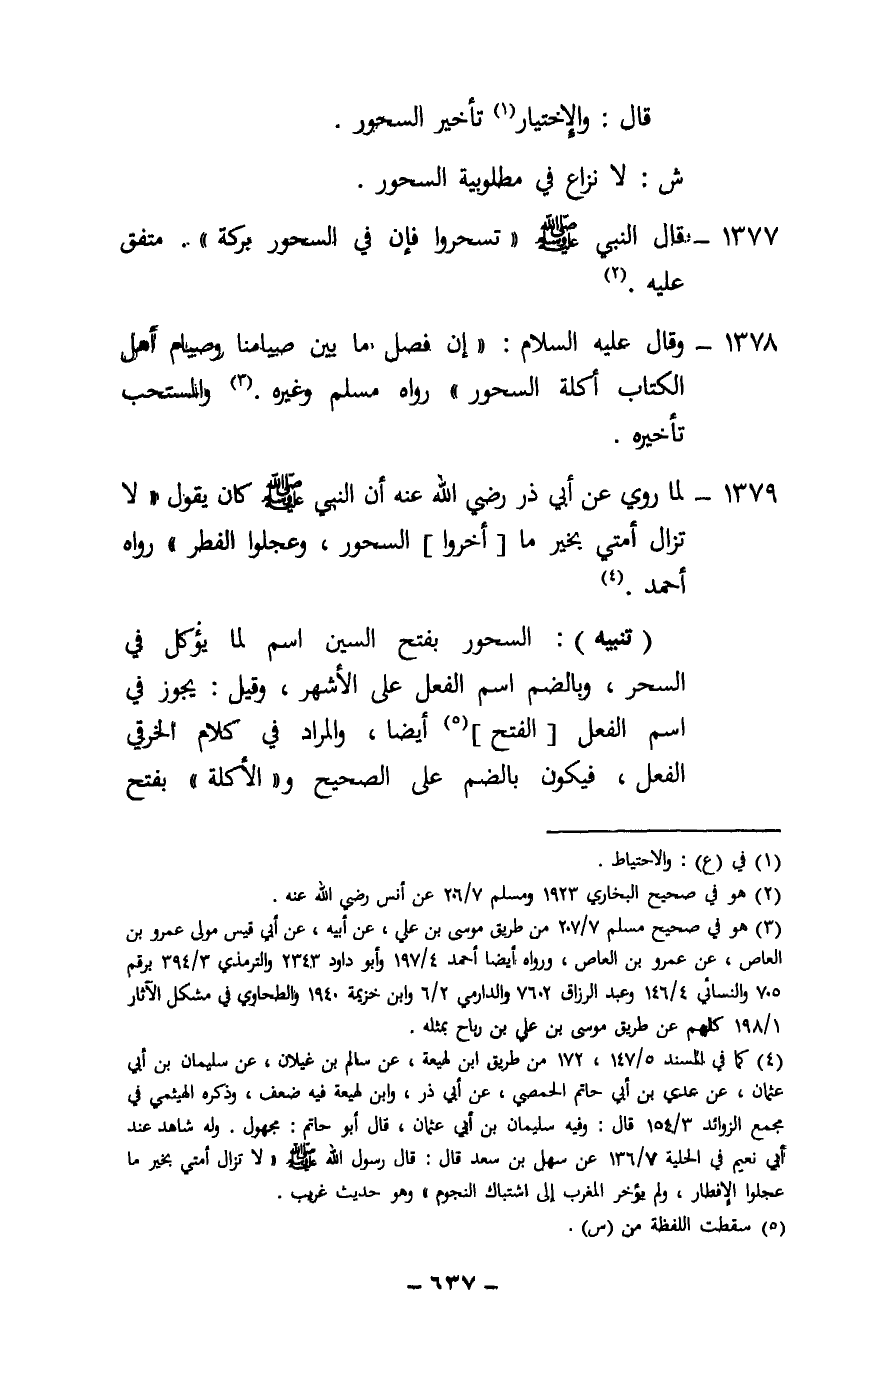 قال : والإختيار(١) تأخير السحور .
ش : لا نزاع في مطلوبية السحور .
١٣٧٧ – قال النبي ﷺ « تسحروا فإن في السحور بركة » . متفق
عليه .(٢)
١٣٧٨ – وقال عليه السلام : « إن فصل ما بين صيامنا وصيام أهل
الكتاب أكلة السحور » رواه مسلم وغيره .(٣) والمستحب
تأخيره .
١٣٧٩ – لما روي عن أبي ذر رضي الله عنه أن النبي ﷺ كان يقول « لا
تزال أمتي بخير ما [ أخروا ] السحور ، وعجلوا الفطر » رواه
أحمد .(٤)
( تنبيه ) : السحور بفتح السين اسم لما يؤكل في
السحر ، وبالضم اسم الفعل على الأشهر ، وقيل : يجوز في
اسم الفعل [ الفتح ](٥) أيضا ، والمراد في كلام الخرقي
الفعل ، فيكون بالضم على الصحيح و« الأكلة » بفتح
(١) في (ع) : والاحتياط .
(٢) هو في صحيح البخاري ١٩٢٣ ومسلم ٢٠٦/٧ عن أنس رضي الله عنه .
(٣) هو في صحيح مسلم ٢٠٧/٧ من طريق موسى بن علي ، عن أبيه ، عن أبي قيس مولى عمرو بن
العاص ، عن عمرو بن العاص ، ورواه أيضا أحمد ١٩٧/٤ وأبو داود ٢٣٤٣ والترمذي ٣٩٤/٣ برقم
٧٠٥ والنسائي ١٤٦/٤ وعبد الرزاق ٧٦٠٢ والدارمي ٦/٢ وابن خزيمة ١٩٤٠ والطحاوي في مشكل الآثار
١٩٨/١ كلهم عن طريق موسى بن علي بن رباح بمثله .
(٤) كما في المسند ١٤٧/٥ ، ١٧٢ من طريق ابن لهيعة ، عن سالم بن غيلان ، عن سليمان بن أبي
عثمان ، عن عدي بن أبي حاتم الحمصي ، عن أبي ذر ، وابن لهيعة فيه ضعف ، وذكره الهيثمي في
مجمع الزوائد ١٥٤/٣ قال : وفيه سليمان بن أبي عثمان ، قال أبو حاتم : مجهول . وله شاهد عند
أبي نعيم في الحلية ١٣٦/٧ عن سهل بن سعد قال : قال رسول الله ﷺ « لا تزال أمتي بخير ما
عجلوا الإفطار ، ولم يؤخر المغرب إلى اشتباك النجوم » وهو حديث غريب .
(٥) سقطت اللفظة من (س) .
– ٦٣٧ –